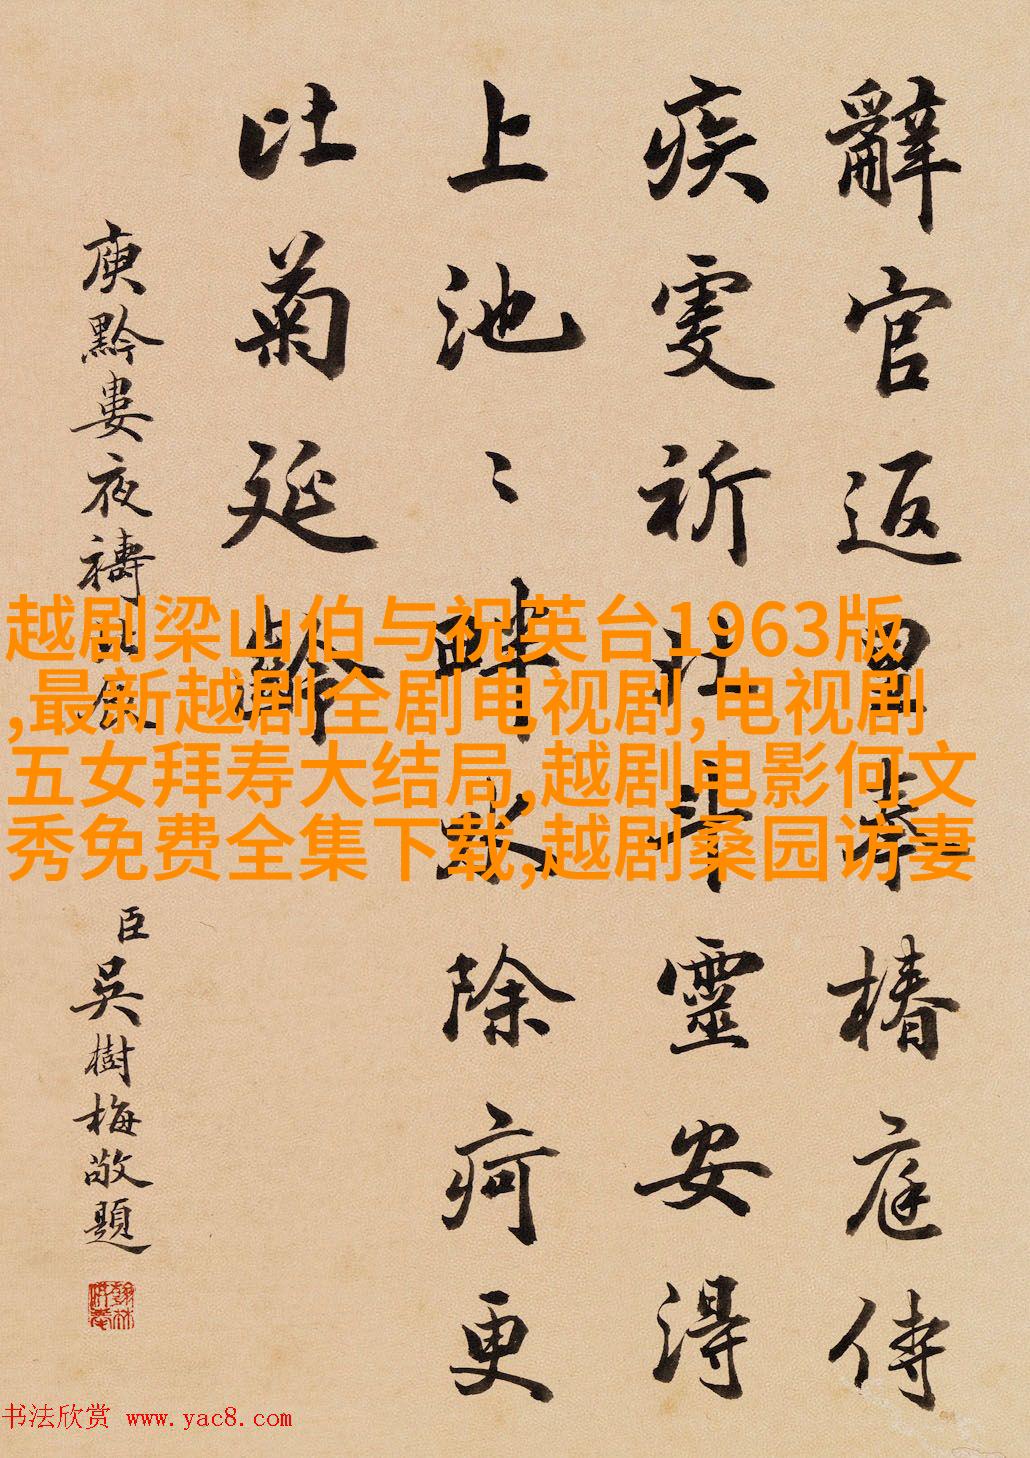 辭官返里奉椿庭侍
疾虔祈北斗靈安得
上池〻畔水除疴更
比菊延齡
庾黔婁夜禱北辰
臣吳樹梅敬題
越剧梁山伯与祝英台1963版
,最新越剧全剧电视剧,电视剧
五女拜寿大结局,越剧电影何文
秀免费全集下载,越剧桑园访妻
书法欣赏 www.yac8.com